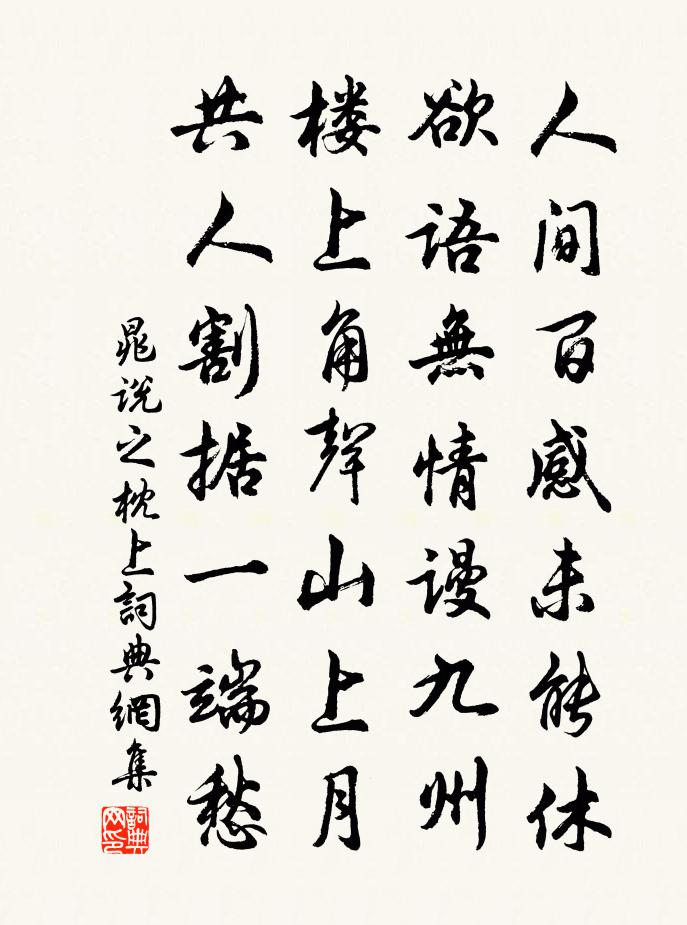 人间百感未能休
欲语無情谩九州
楼上角聲山上月
共人割据一端愁
晁说之枕上詞典網集
詞典网印